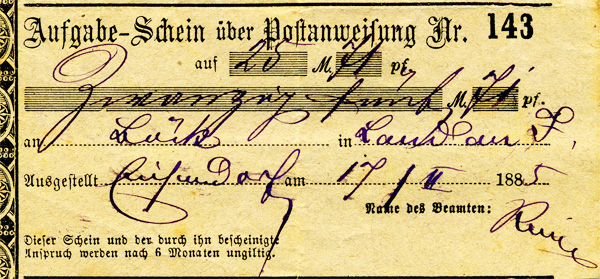 Aufgabe-Schein über Postanweisung Nr. 143
auf 25 M. 71 pf.
Zwanzig fünf M. 71 pf.
an Böck in Landau
Ausgestellt am 17/II 1885
Name des Beamten:
Dieser Schein und der durch ihn bescheinigte
Anspruch werden nach 6 Monaten ungiltig.